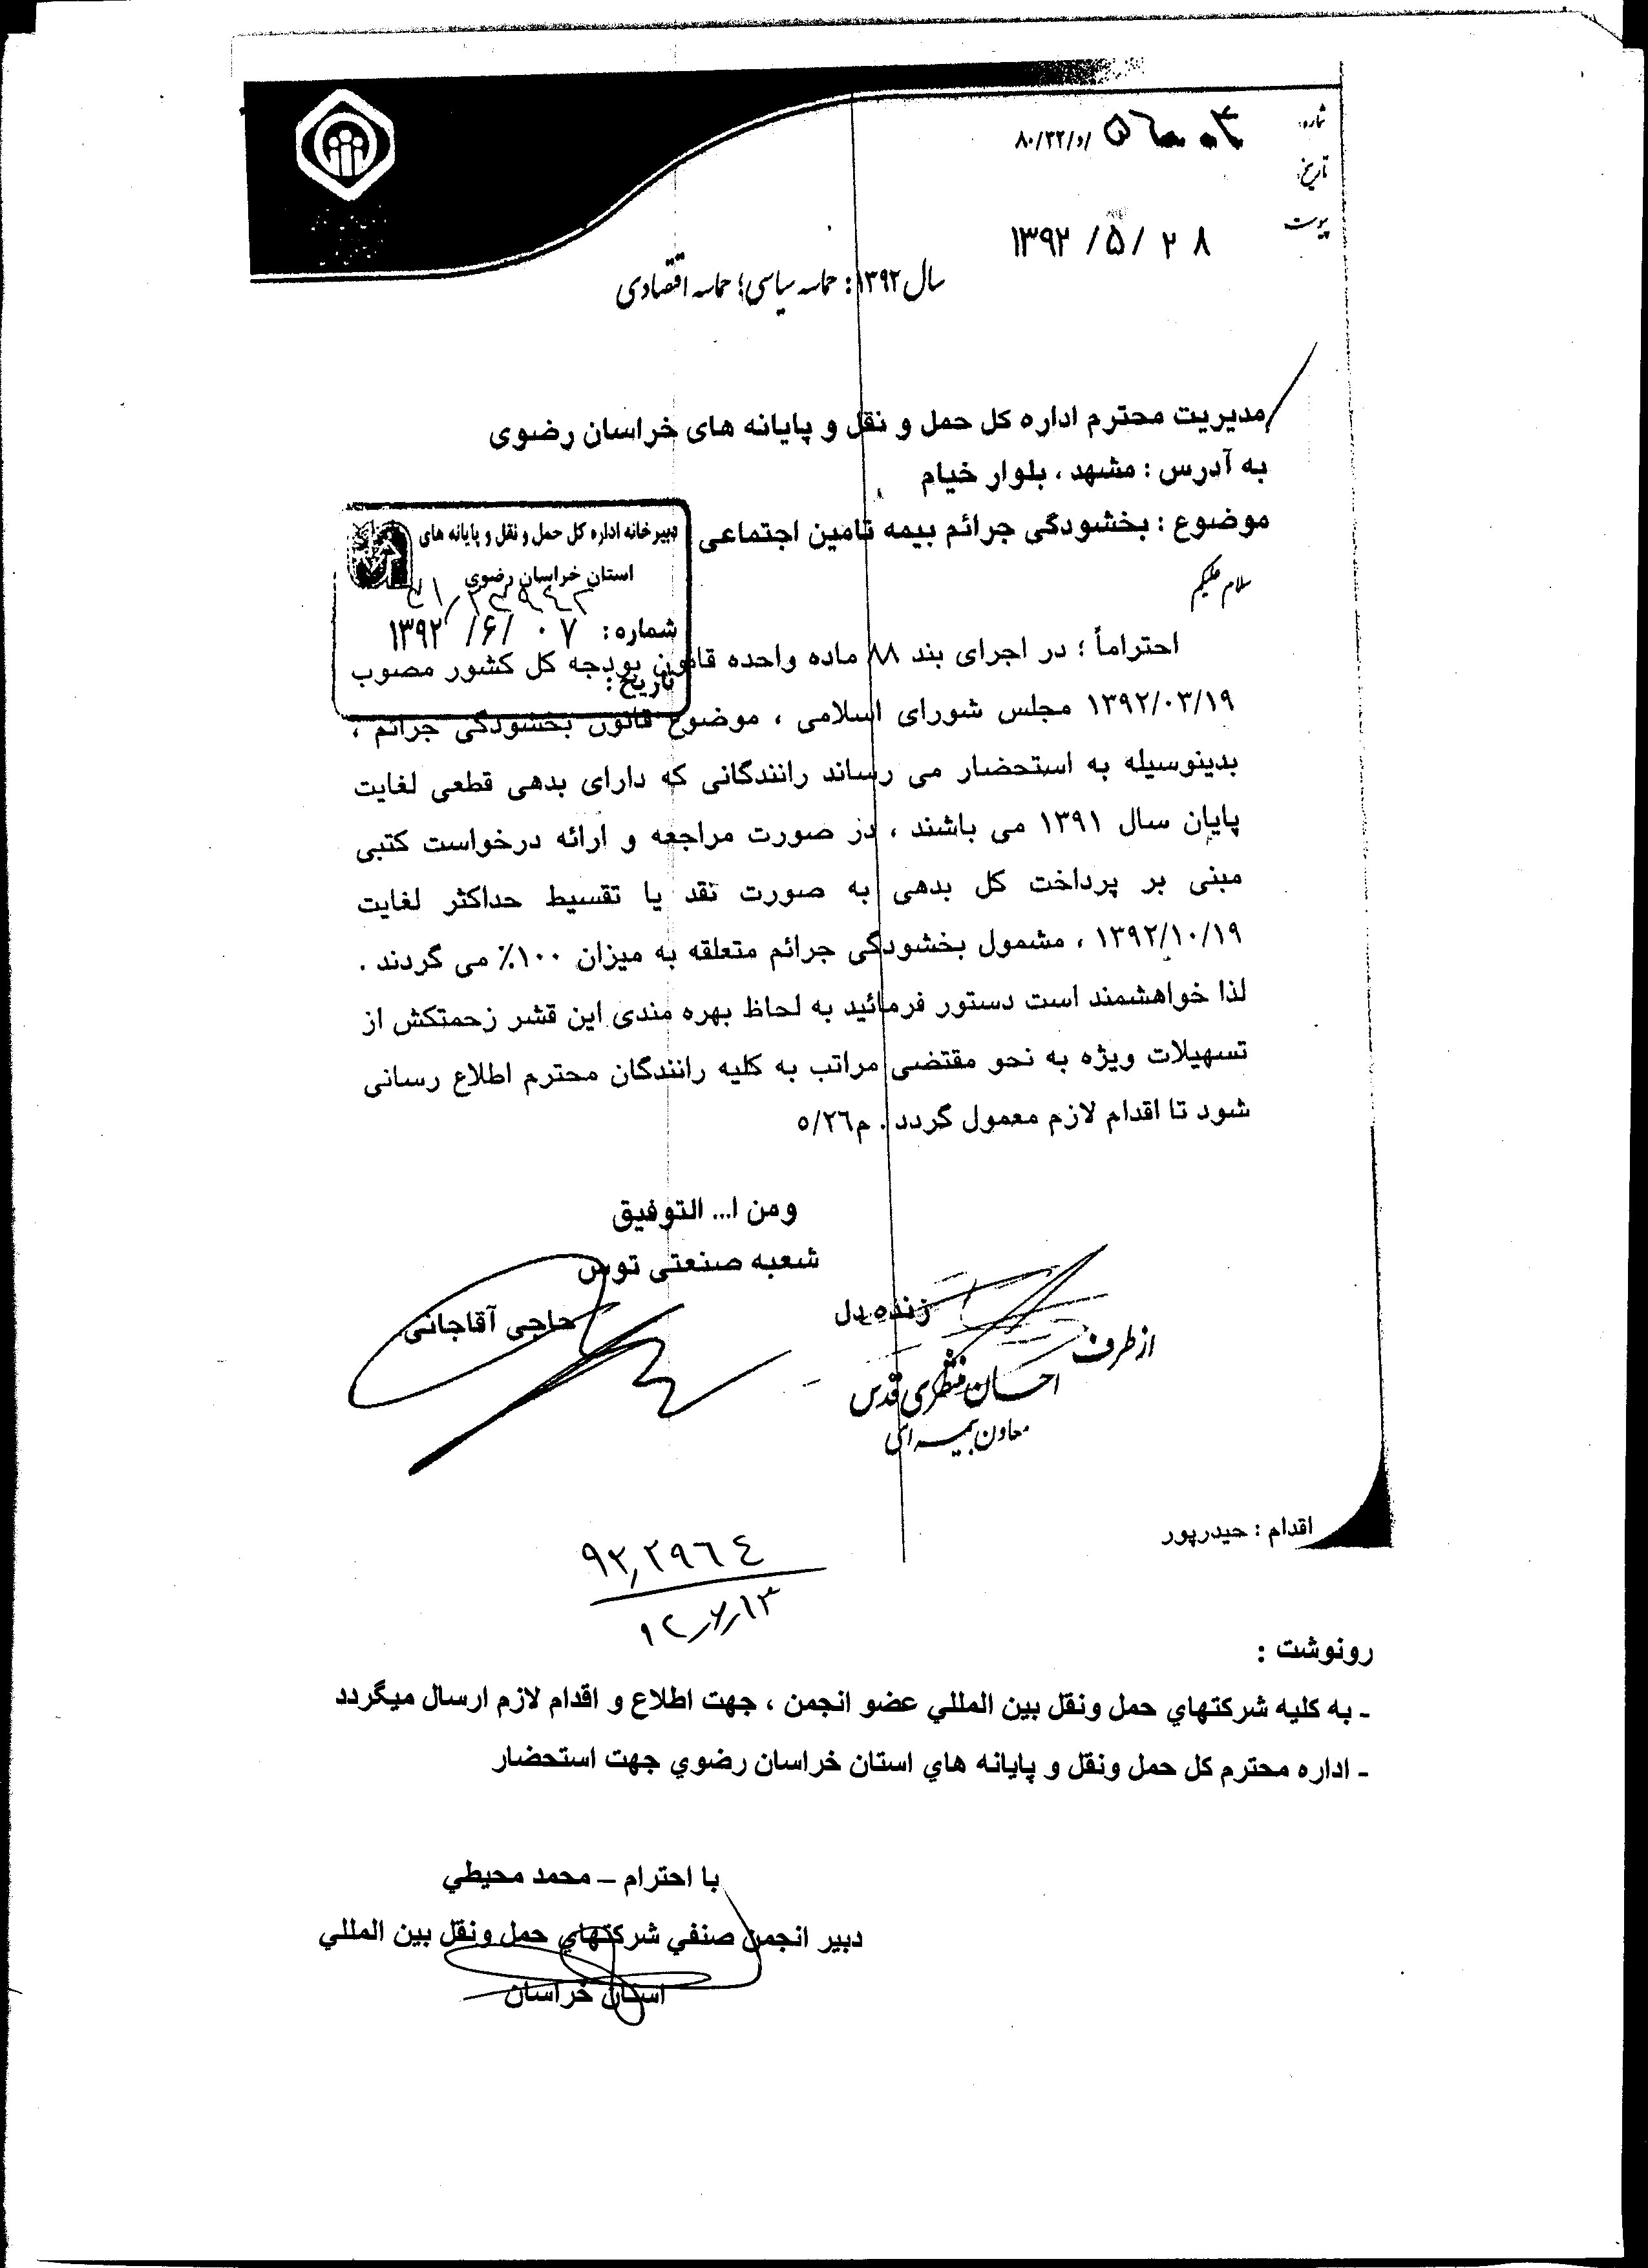 شماره:
۸۰/۲۲/و/
تاریخ:
پیوست
۱۳۹۲/۵/۲۸
سال ۱۳۹۲: حماسه سیاسی؛ حماسه اقتصادی
مدیریت محترم اداره کل حمل و نقل و پایانه های خراسان رضوی
به آدرس : مشهد ، بلوار خیام
موضوع : بخشودگی جرائم بیمه تامین اجتماعی
دبیرخانه اداره کل حمل و نقل و پایانه های
استان خراسان رضوی
شماره:
۱۳۹۲/۶/۰۷
تاریخ:
سلام علیکم
احتراماً ؛ در اجرای بند ۸۸ ماده واحده قانون بودجه کل کشور مصوب
۱۳۹۲/۰۳/۱۹ مجلس شورای اسلامی ، موضوع قانون بخشودگی جرائم ،
بدینوسیله به استحضار می رساند رانندگانی که دارای بدهی قطعی لغایت
پایان سال ۱۳۹۱ می باشند ، در صورت مراجعه و ارائه درخواست کتبی
مبنی بر پرداخت کل بدهی به صورت نقد یا تقسیط حداکثر لغایت
۱۳۹۲/۱۰/۱۹ ، مشمول بخشودگی جرائم متعلقه به میزان ۱۰۰٪ می گردند .
لذا خواهشمند است دستور فرمائید به لحاظ بهره مندی این قشر زحمتکش از
تسهیلات ویژه به نحو مقتضی مراتب به کلیه رانندگان محترم اطلاع رسانی
شود تا اقدام لازم معمول گردد . م۵/۲۶
ومن ا... التوفیق
شعبه صنعتی توس
زنده دل
حاجی آقاجانی
از طرف
احسان منتظری قدس
معاون بیمه ای
اقدام : حیدرپور
۹۲,۲۹۶٤
۹۲,۶,۱۳
رونوشت :
- به کلیه شرکتهاي حمل ونقل بین المللي عضو انجمن ، جهت اطلاع و اقدام لازم ارسال میگردد
- اداره محترم کل حمل ونقل و پایانه هاي استان خراسان رضوي جهت استحضار
با احترام – محمد محیطي
دبیر انجمن صنفي شرکتهاي حمل ونقل بین المللي
استان خراسان